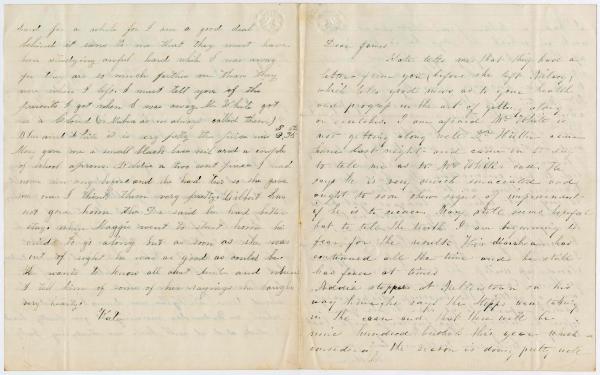 hard for a while for I am a good deal
behind it seems to me that they must have
been studying awful hard while I was away
for they are so much farther on than they
were when I left. I must tell you of the
presents I got when I was away. Mr White got
me a Cloud (Nubia as is always called them)
Blue and White it is very pretty the price was
May gave me a small black and a couple
of school aprons Debbie a two cent piece I had
never seen any before and she had two so she gave
me one I think them very pretty. Gilbert has
not gone home the Dr said he had better
stay when Maggie went to start home he
cried to go along but as soon as she was
out of sight he was as good as could be.
He wants to know all about and when
I tell him of some of her sayings she laughs
very hearty.
Kate
Dear James
Kate tells me that they have a
letter from you, before she left
which tells good news as to your health
and progress in the art of getting along
on crutches. I am afraid Mr White is
not getting along well Dr came
home last night and came in to day
to tell me as to Mr White's case. He
says he is very much emaciated and
ought to soon show signs of improvement
if he is to recover. Mary still seems hopeful
but to tell the truth I am beginning to
fear for the result. His diarrhoea has
continued all the time and he still
has fever at times
Addie stopped at on his
way home, he says the are taking
in the corn and that there will be
nine hundred bushels this year which
considering the season is doing pretty well